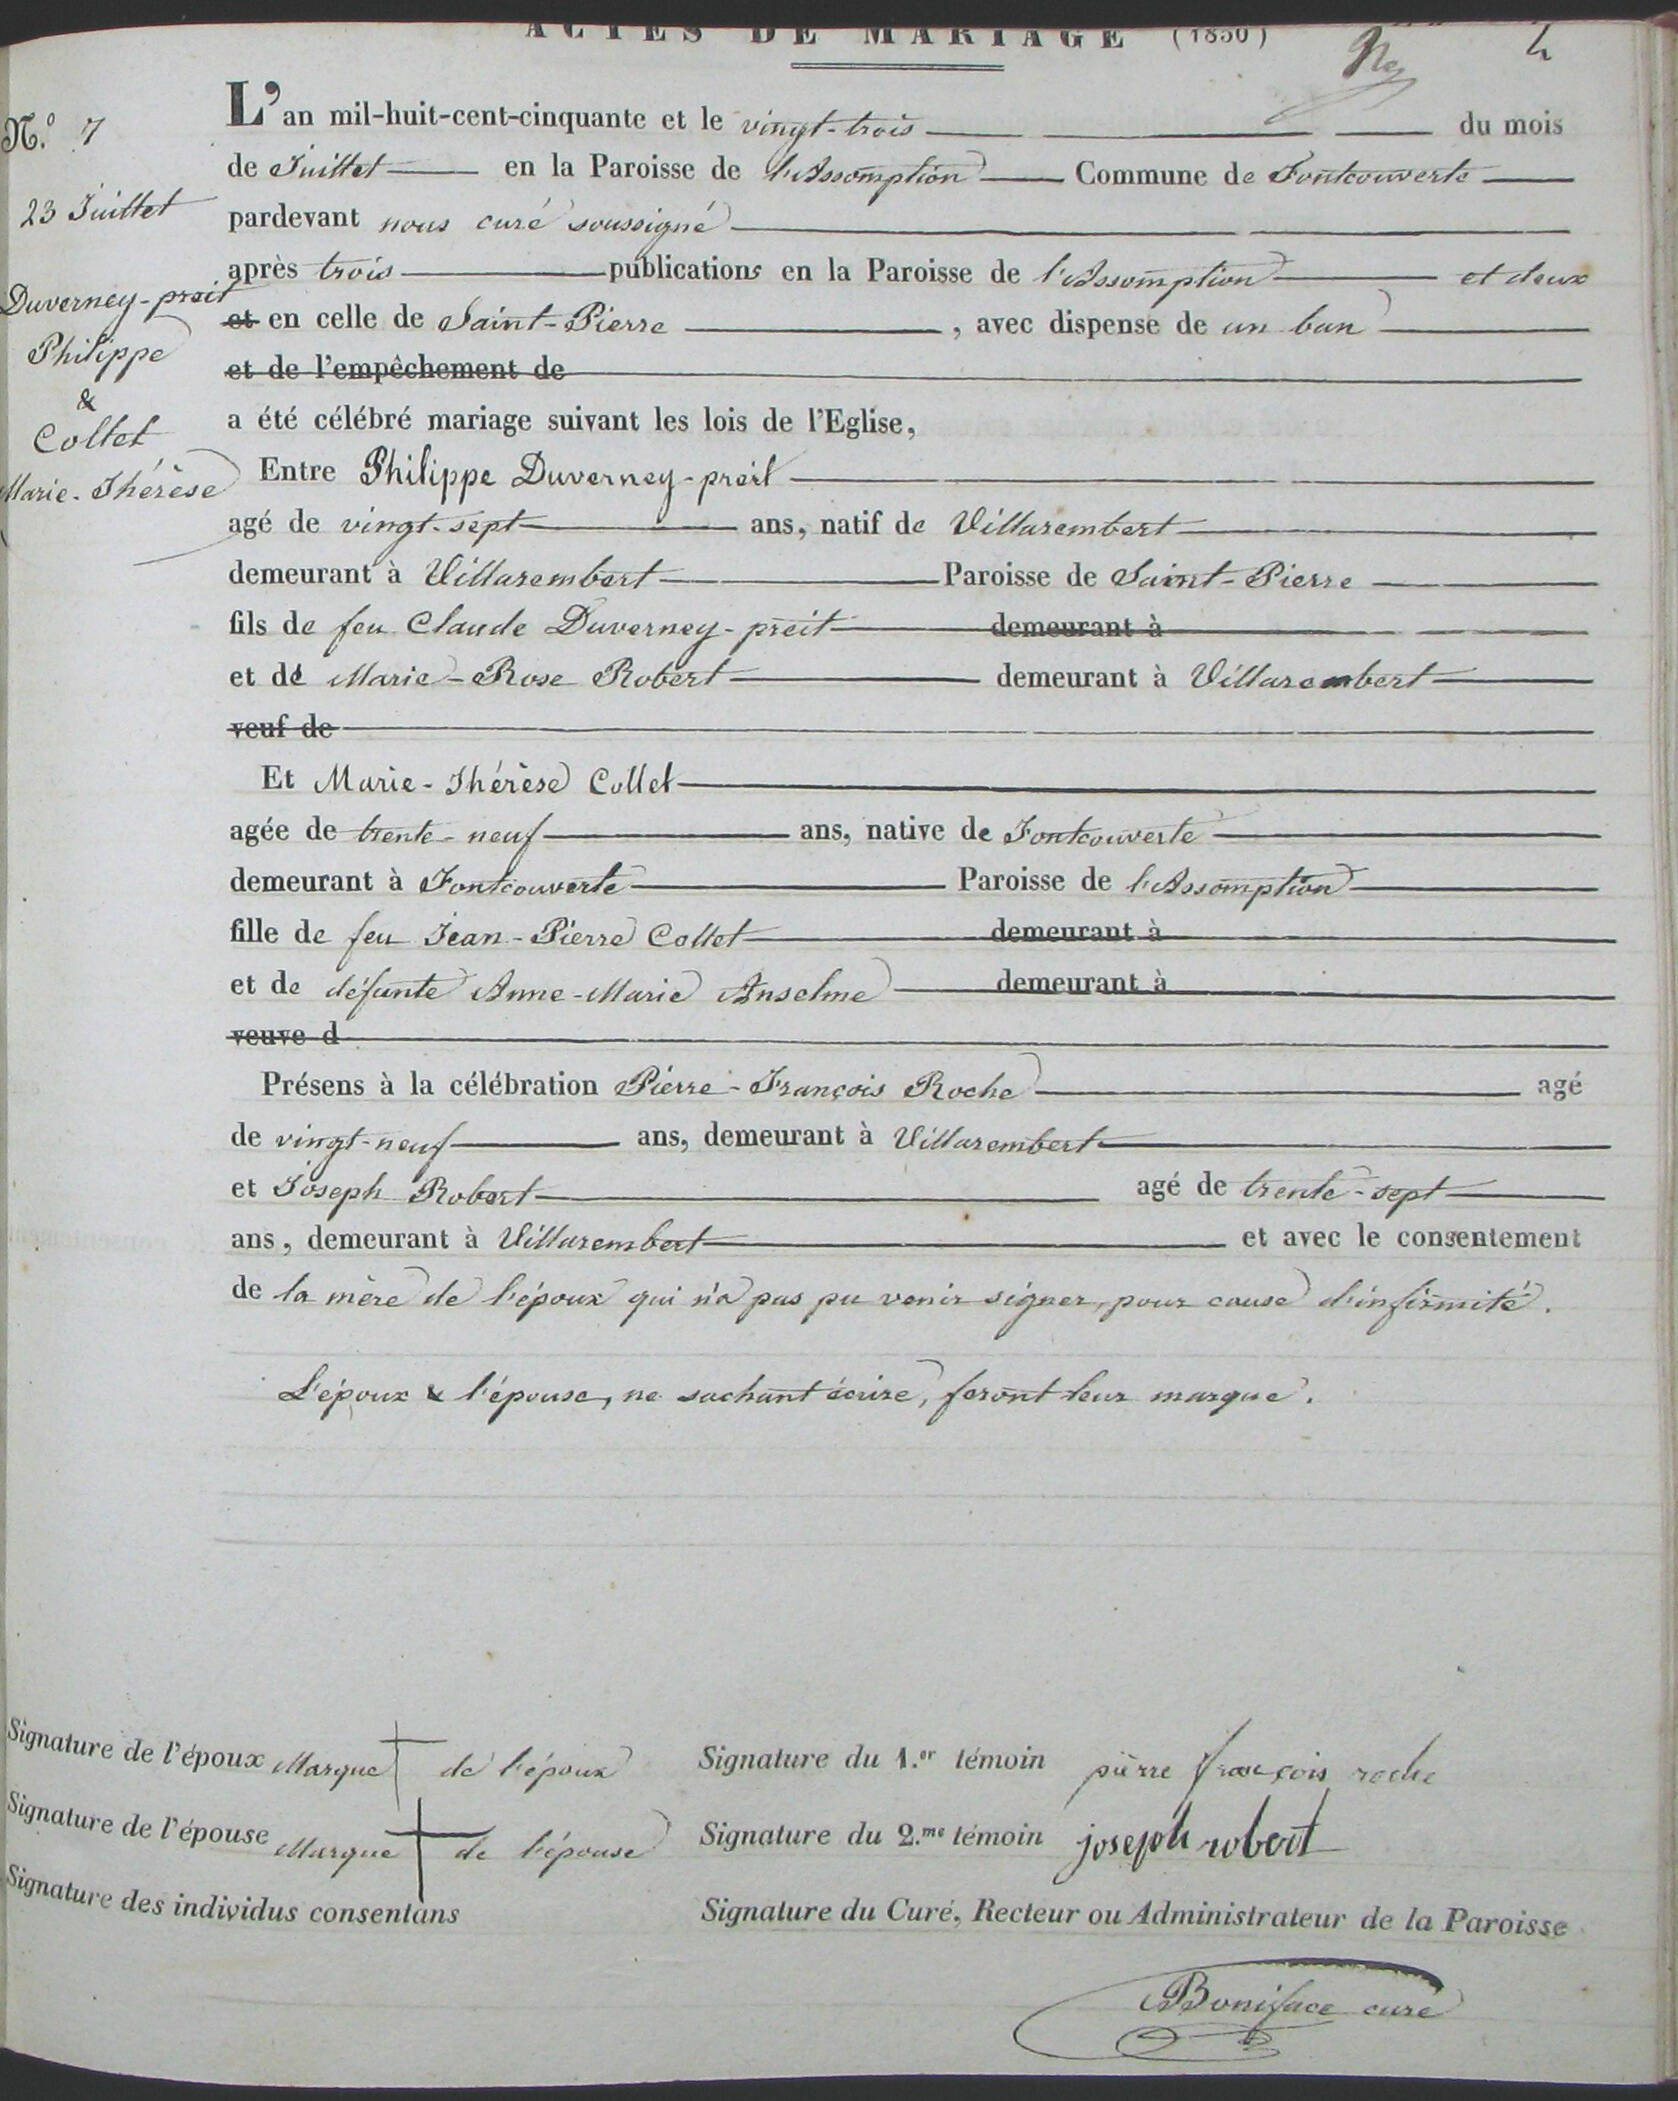 ACTES DE MARIAGE (1850)
N.º 7
23 Juillet
Duverney-preit
Philippe
&
Collet
Marie-Thérèse
L'an mil-huit-cent-cinquante et le vingt-trois du mois
de Juillet en la Paroisse de l'Assomption Commune de Fontcouverte
pardevant nous curé soussigné
après trois publications en la Paroisse de l'Assomption et deux
et en celle de Saint-Pierre , avec dispense de un ban
et de l'empêchement de
a été célébré mariage suivant les lois de l'Eglise,
Entre Philippe Duverney-preit
agé de vingt-sept ans, natif de Villarembert
demeurant à Villarembert Paroisse de Saint-Pierre
fils de feu Claude Duverney-preit demeurant à
et de Marie-Rose Robert demeurant à Villarembert
veuf de
Et Marie-Thérèse Collet
agée de trente-neuf ans, native de Fontcouverte
demeurant à Fontcouverte Paroisse de l'Assomption
fille de feu Jean-Pierre Collet demeurant à
et de défunte Anne-Marie Anselme demeurant à
veuve d
Présens à la célébration Pierre-François Roche agé
de vingt-neuf ans, demeurant à Villarembert
et Joseph Robert agé de trente-sept
ans, demeurant à Villarembert et avec le consentement
de la mère de l'époux qui n'a pas pu venir signer, pour cause d'infirmité.
L'époux & l'épouse, ne sachant écrire, feront leur marque.
Signature de l'époux Marque de l'époux Signature du 1.er témoin pierre françois roche
Signature de l'épouse Marque de l'épouse Signature du 2.me témoin joseph robert
Signature des individus consentans Signature du Curé, Recteur ou Administrateur de la Paroisse
Boniface curé